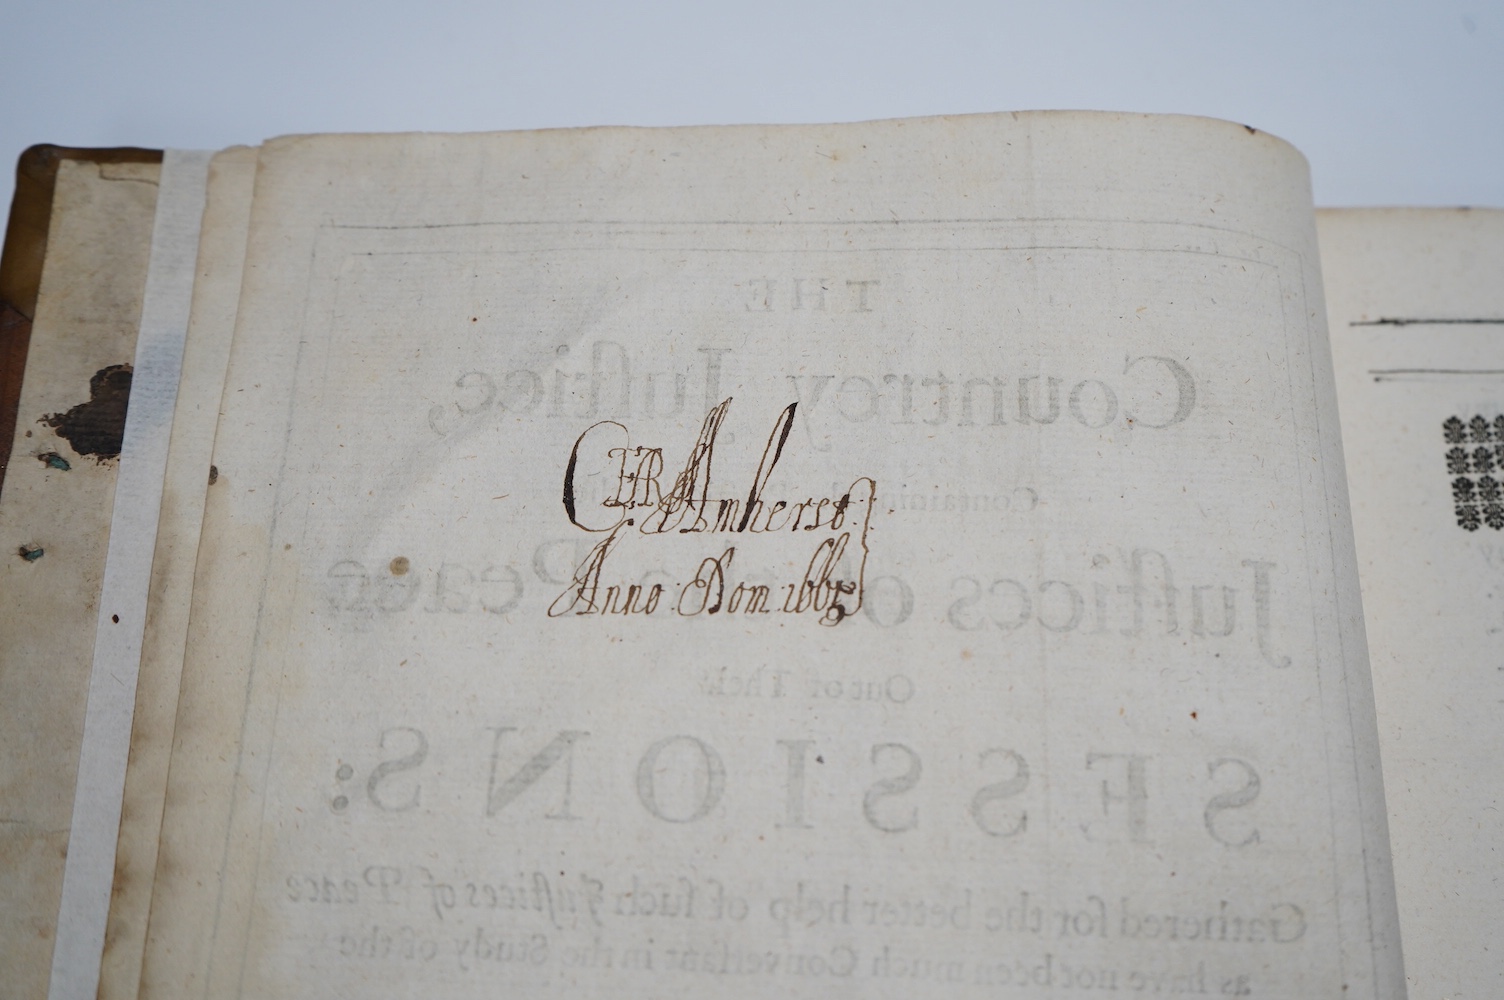 THE
Countrey Juſtice,
Containing
Amherst
Juſtices of Peace
Anno: Dom 1665
Out of Their
SESSIONS:
Gathered for the better help of ſuch Juſtices of Peace
as have not been much Converſant in the Study of the